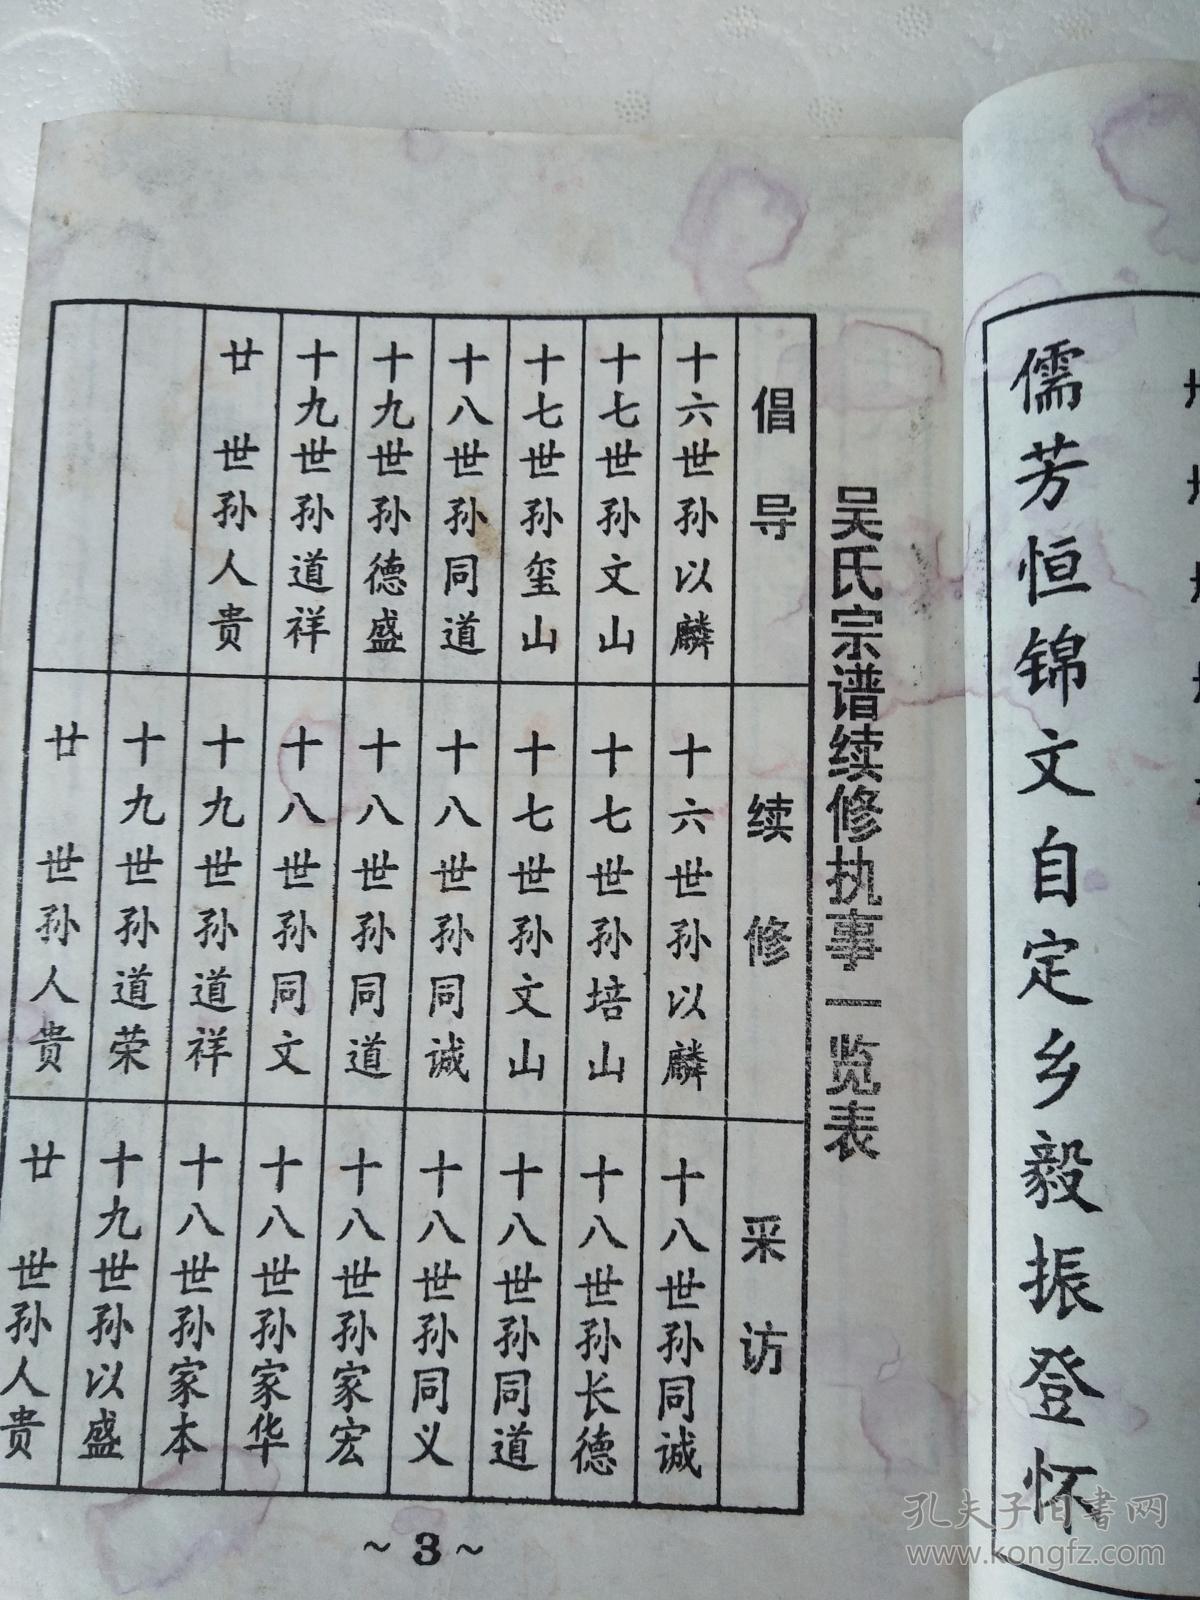 儒芳恒锦文自定乡毅振登怀
吴氏宗谱续修执事一览表
倡导
十六世孙以麟
十七世孙文山
十七世孙玺山
十八世孙同道
十九世孙德盛
十九世孙道祥
廿世孙人贵
续修
十六世孙以麟
十七世孙培山
十七世孙文山
十八世孙同诚
十八世孙同道
十八世孙同文
十九世孙道祥
十九世孙道荣
廿世孙人贵
采访
十八世孙同诚
十八世孙长德
十八世孙同道
十八世孙同义
十八世孙家宏
十八世孙家华
十八世孙家本
十九世孙以盛
廿世孙人贵
~3~
孔夫子旧书网
www.kongfz.com